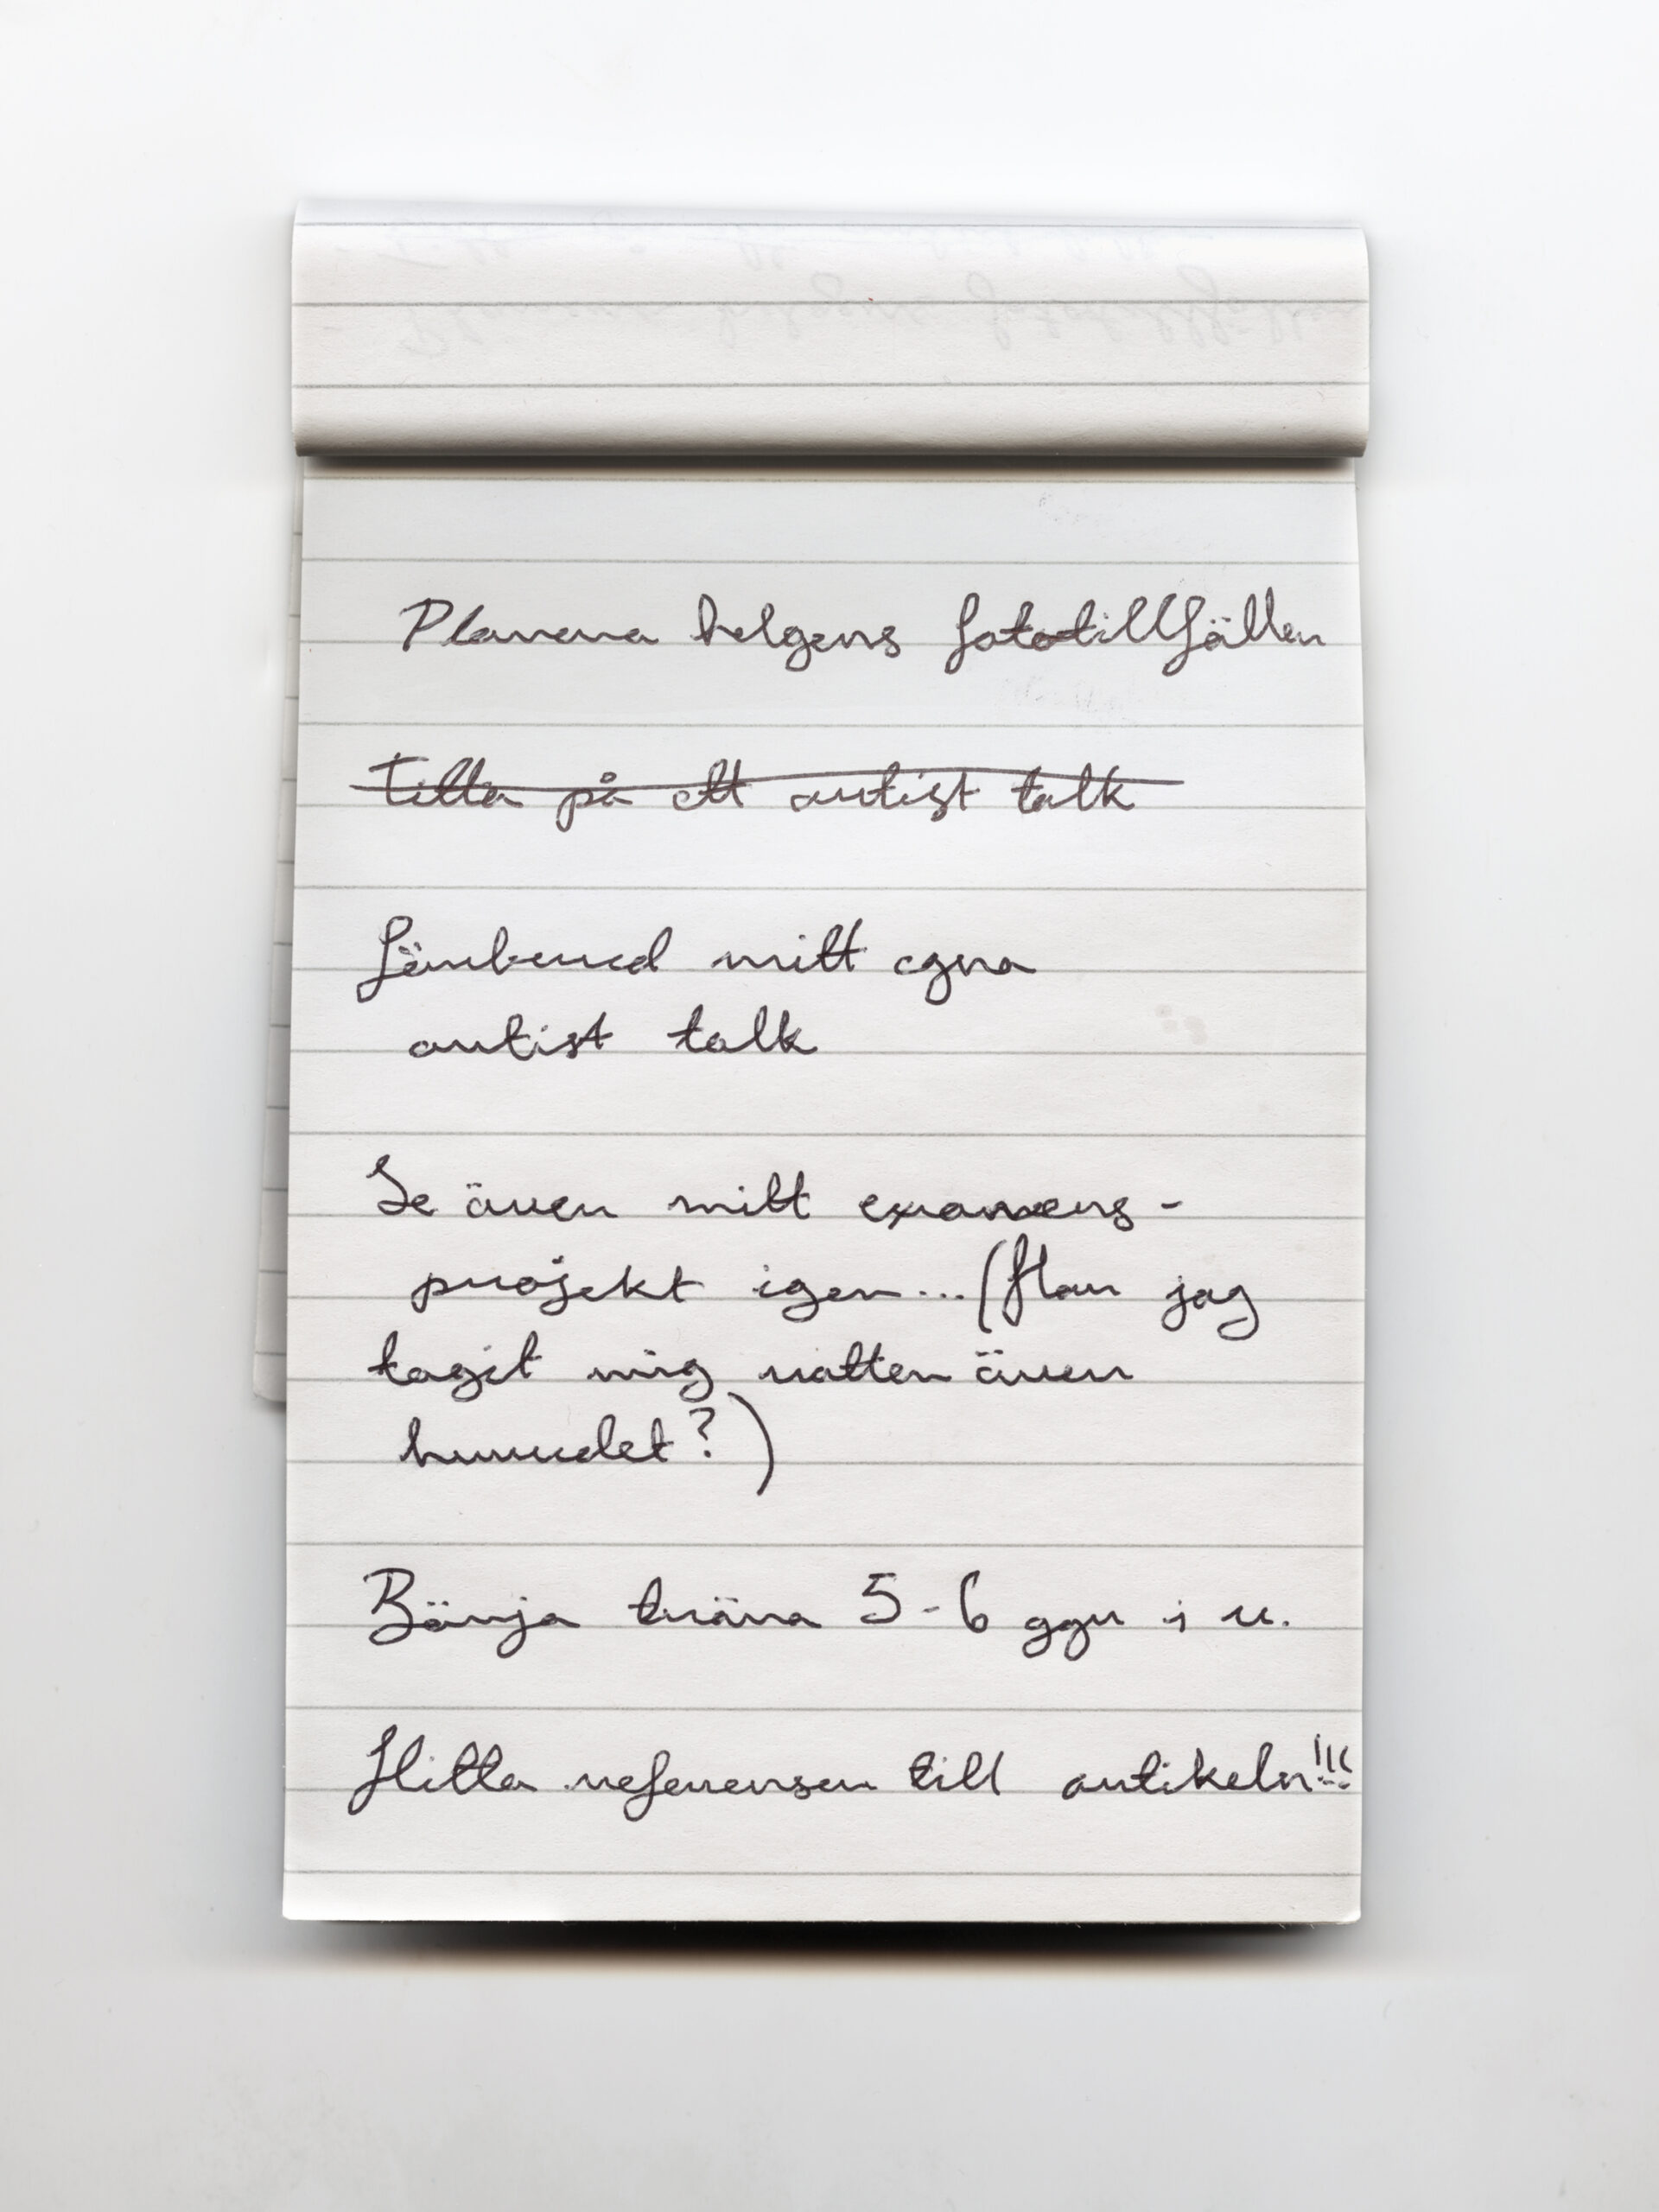 Planera helgens fototillfällen
Titta på ett artist talk
Förbered mitt egna
artist talk
Se över mitt examens-
projekt igen... (Har jag
tagit mig vatten över
huvudet?)
Börja träna 5-6 ggr i v.
Hitta referensen till artikeln!!!